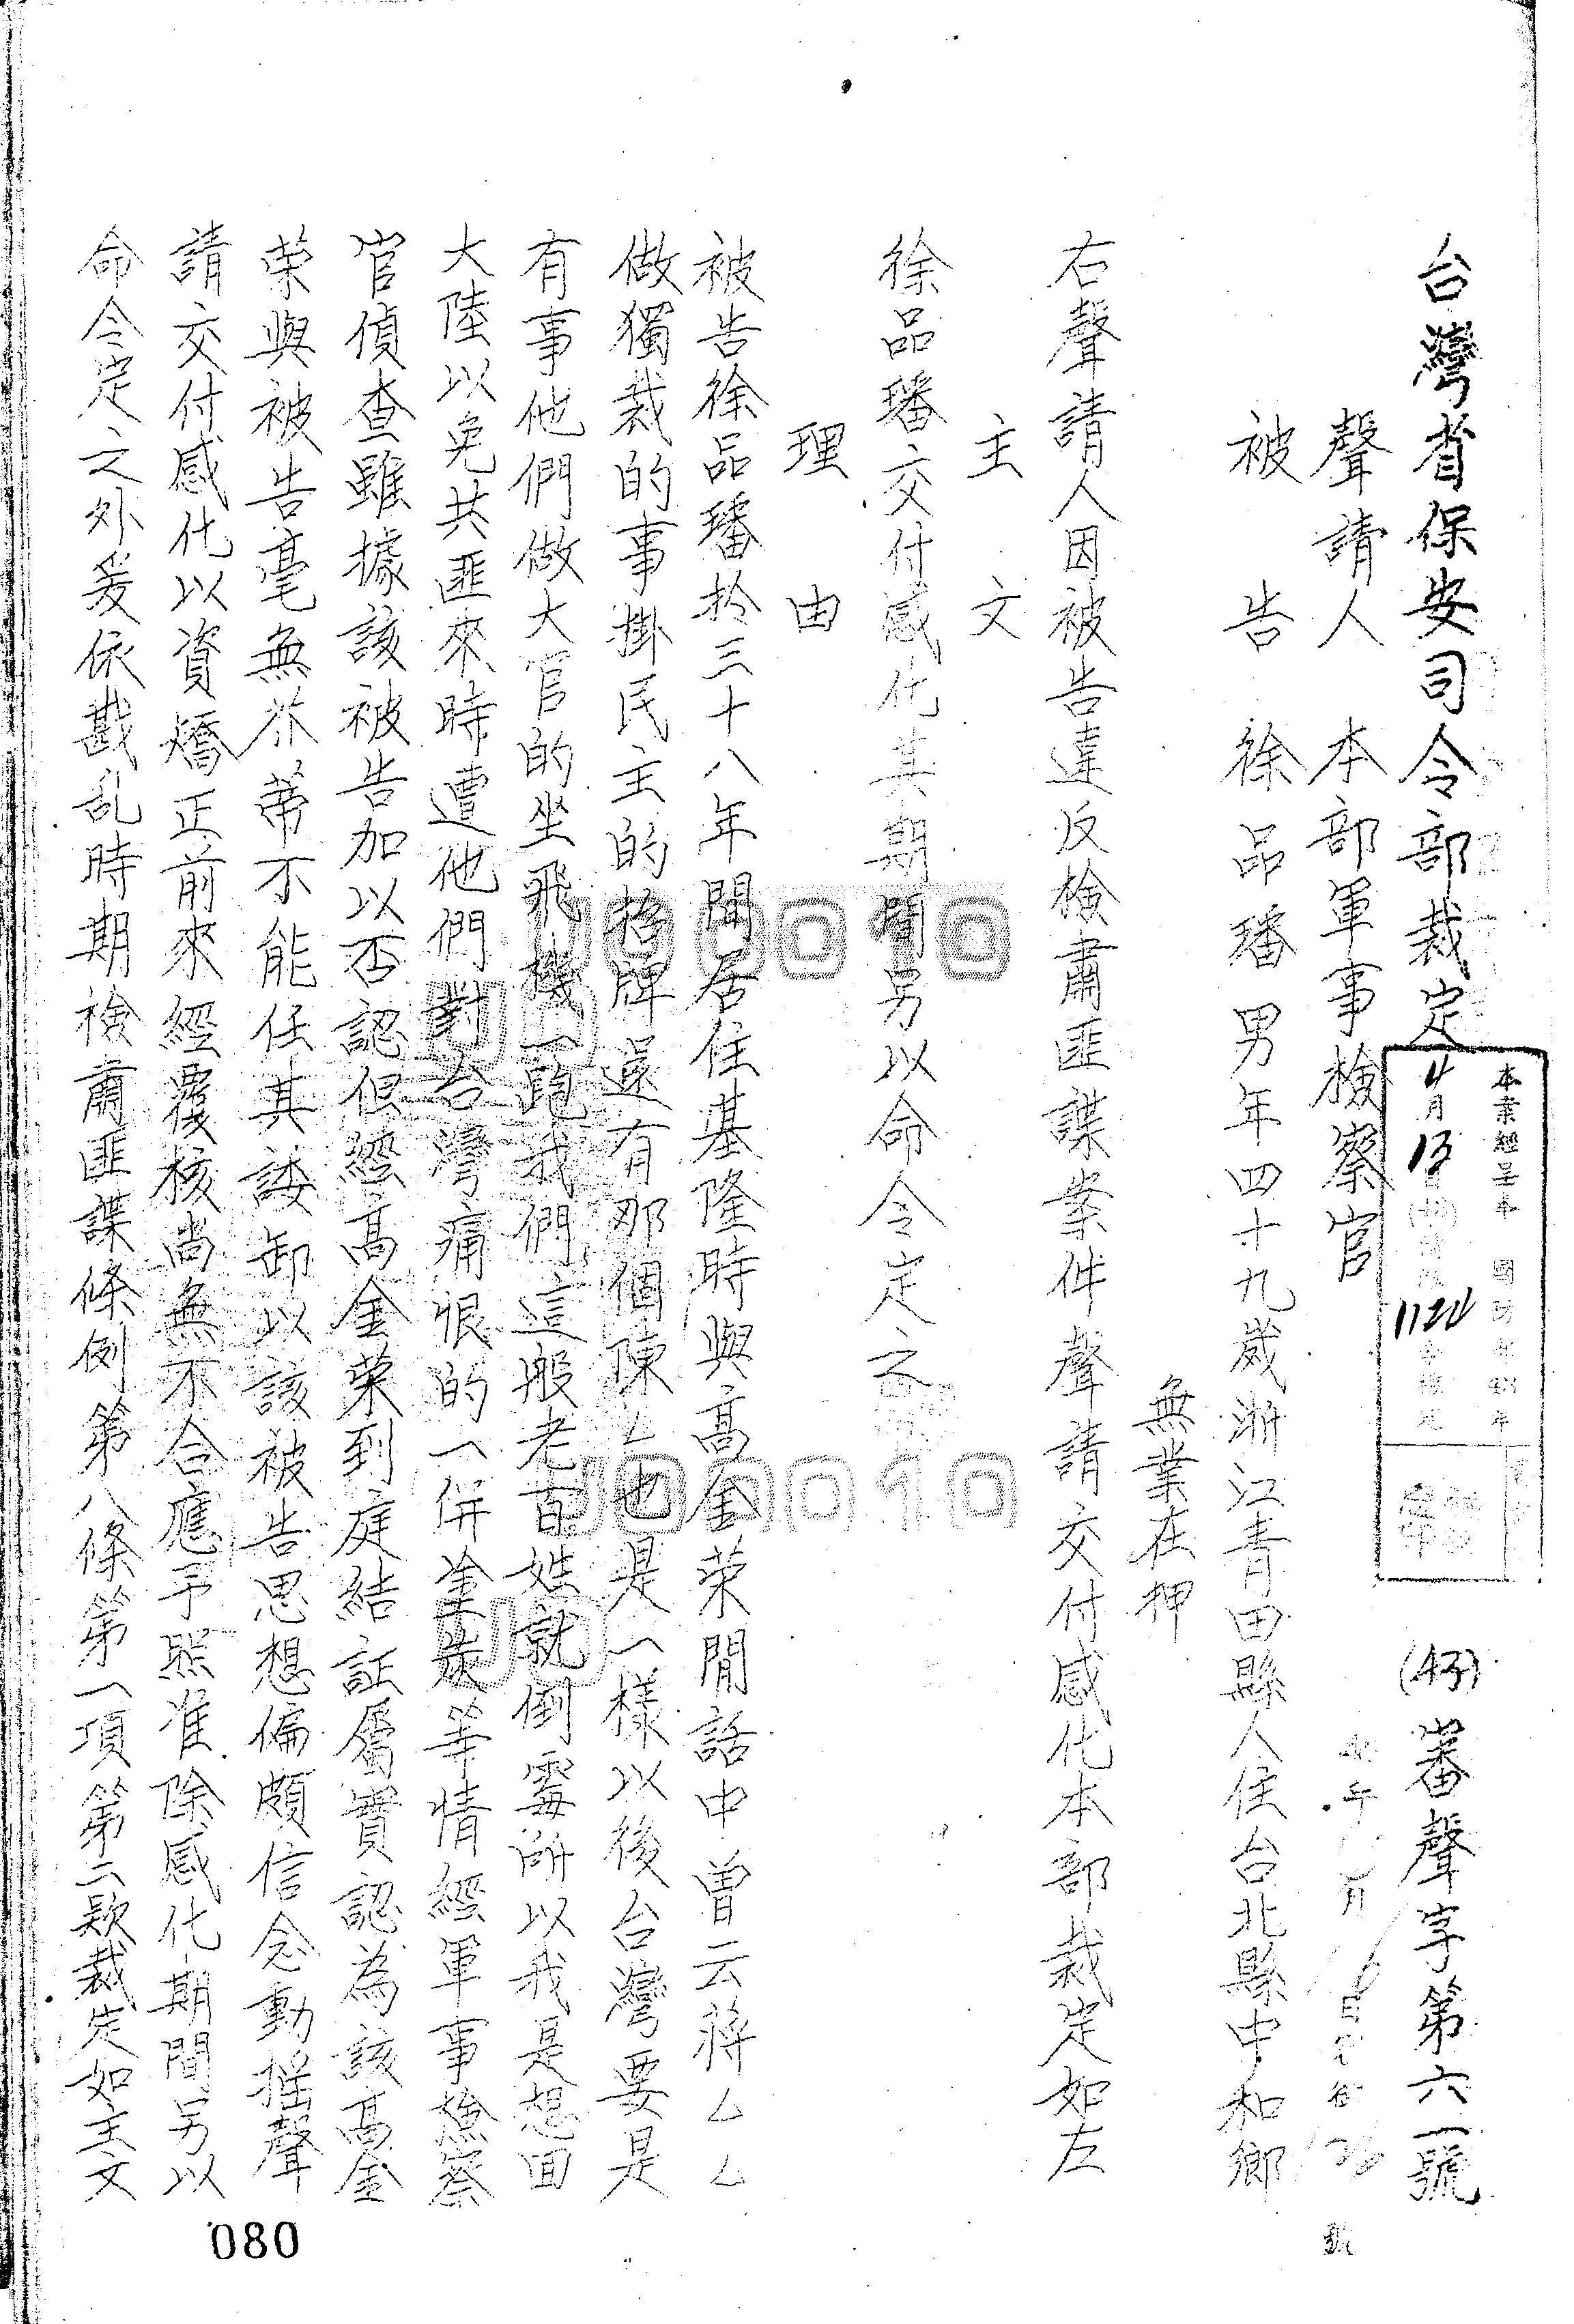 台灣省保安司令部裁定
(43)審聲字第六一號
本案經呈奉 國防部43年
4月13日
1124
聲請人 本部軍事檢察官
被告 徐品璠 男年四十九歲浙江青田縣人住台北縣中和鄉
無業在押
右聲請人因被告違反檢肅匪諜案件聲請交付感化本部裁定如左
主文
徐品璠交付感化其期間另以命令定之
理由
被告徐品璠於三十八年間居住基隆時與高金荣閒話中曾云蔣ムム
做獨裁的事掛民主的招牌還有那個陳ム也是一樣以後台灣要是
有事他們做大官的坐飛機一跑我們這般老百姓就倒霉所以我是想回
大陸以免共匪來時遭他們對台灣痛恨的一併塗炭等情經軍事檢察
官偵查雖據該被告加以否認但經高金荣到庭結証屬實認為該高金
荣與被告毫無芥蒂不能任其諉卸以該被告思想偏頗信念動摇聲
請交付感化以資矯正前來經覆核尚無不合應予照准除感化期間另以
命令定之外爰依戡乱時期檢肅匪諜條例第八條第一項第二款裁定如主文
080